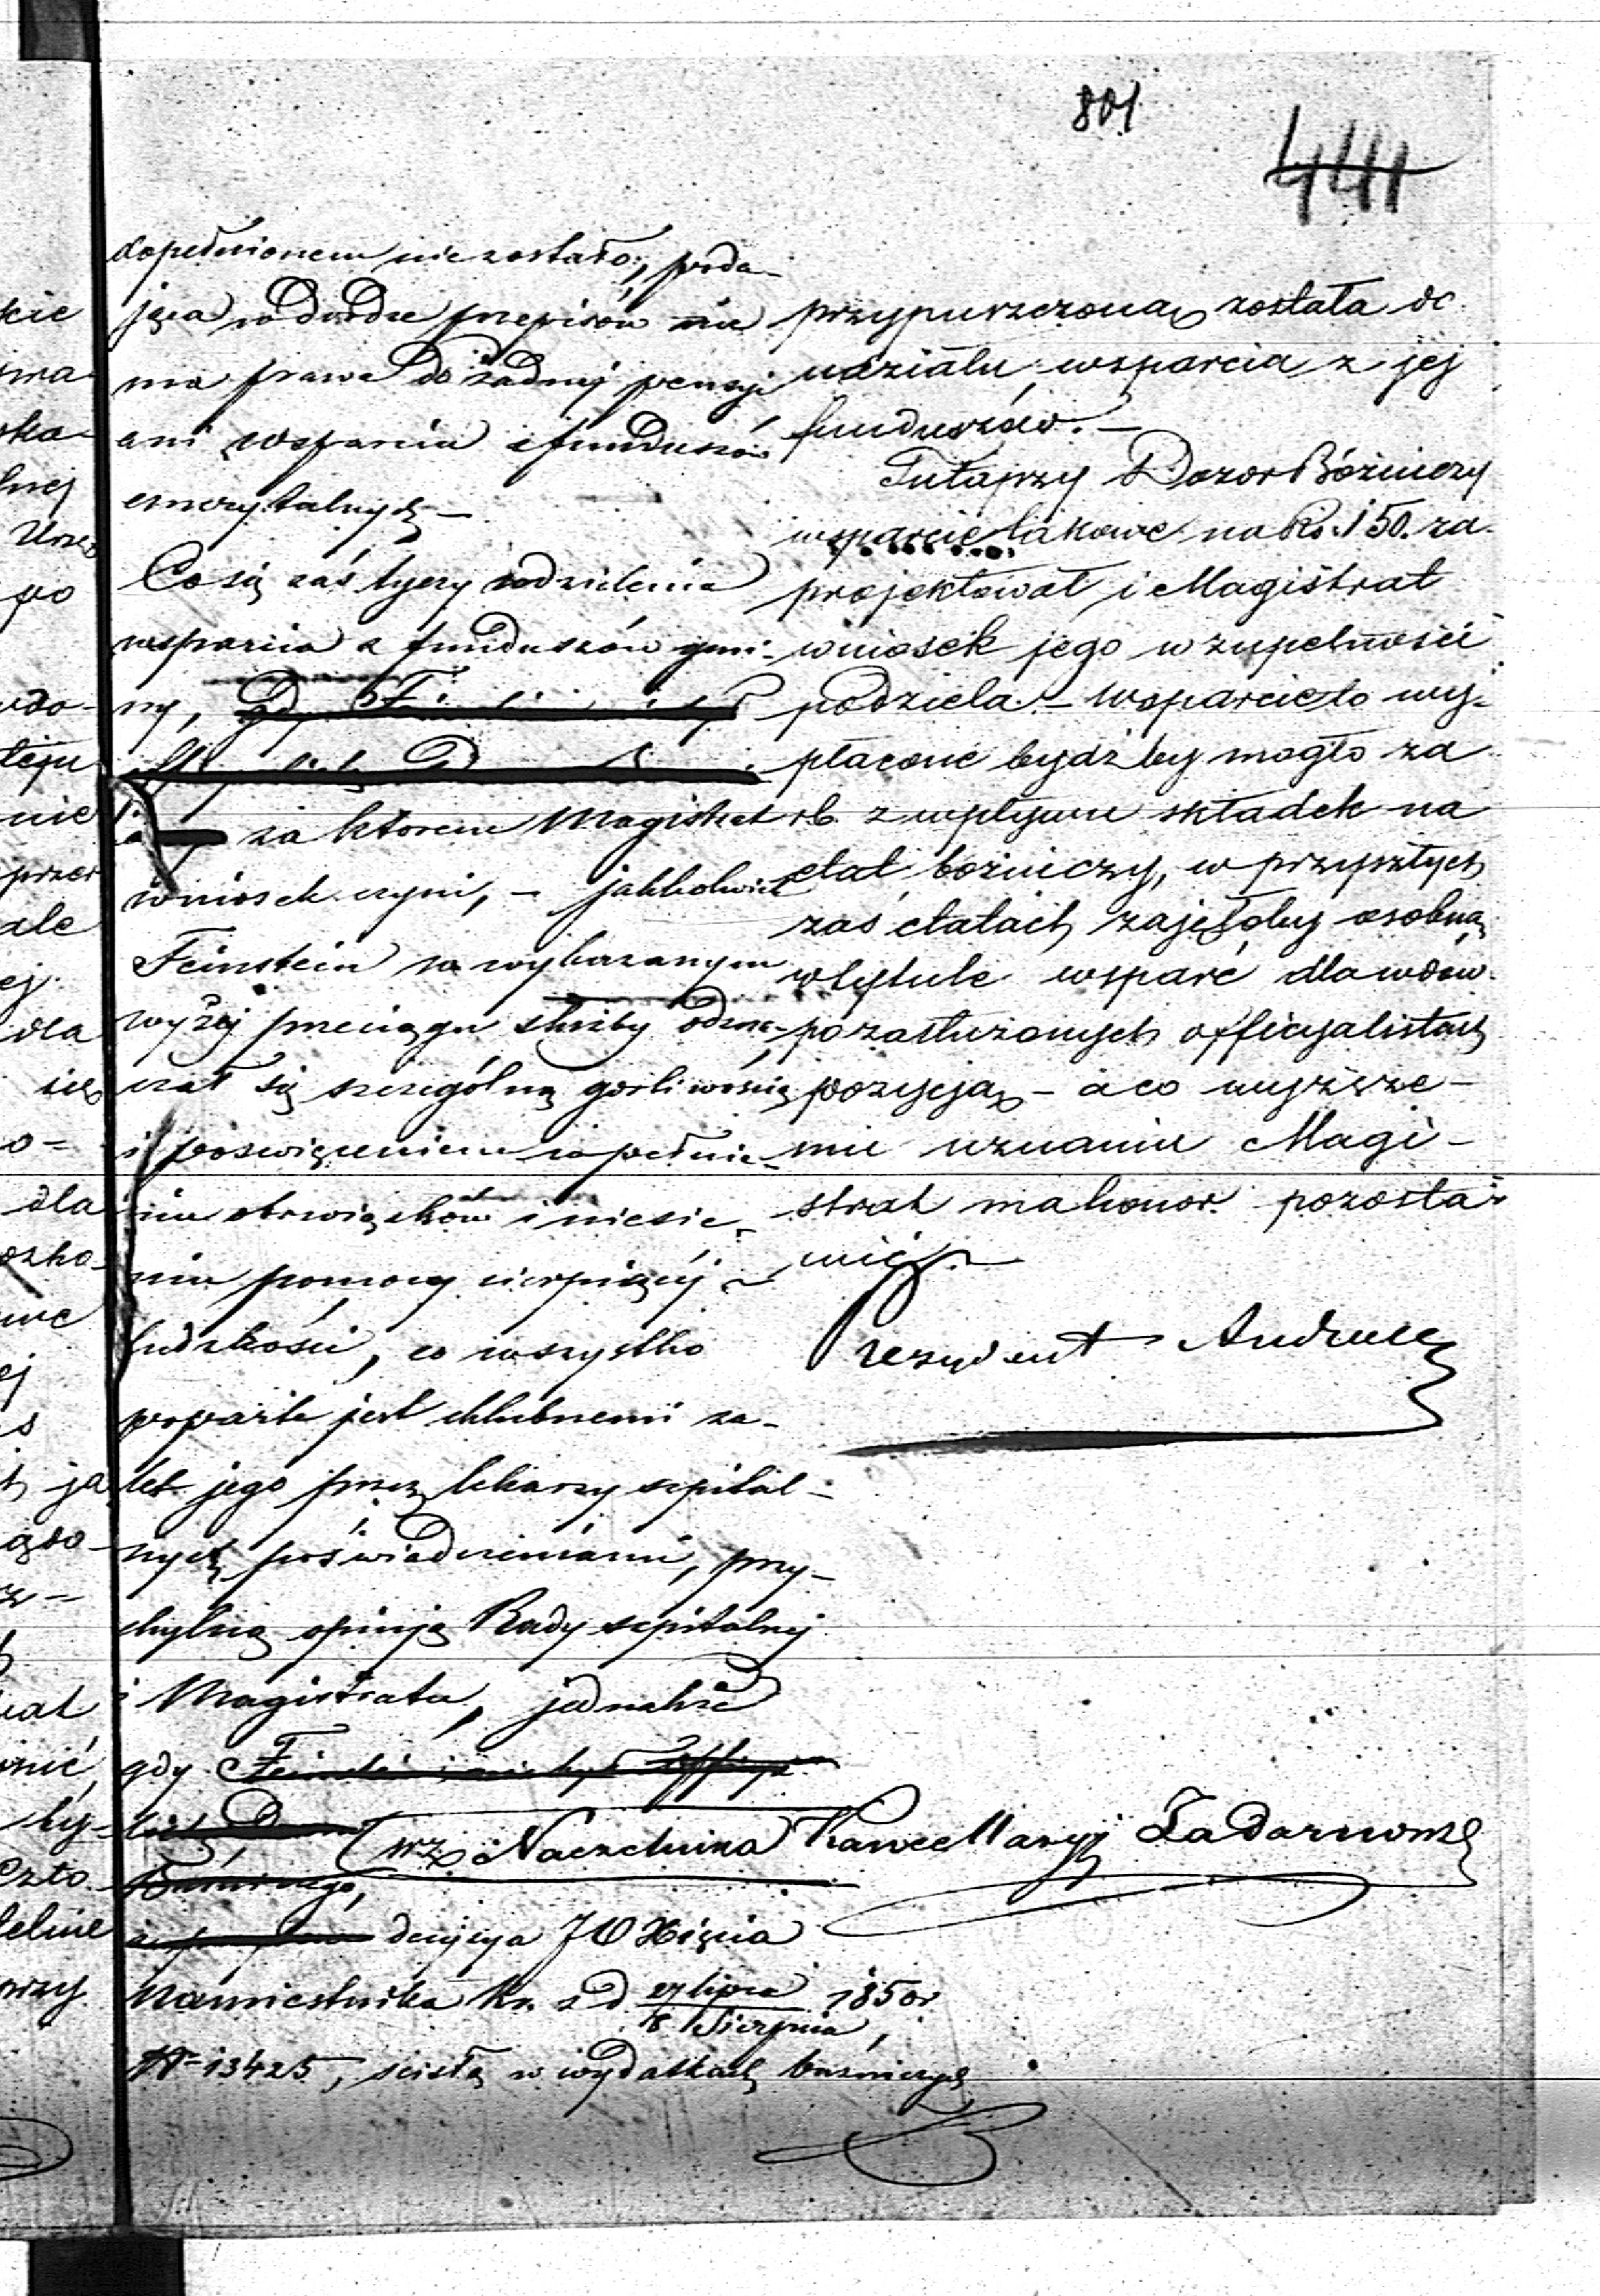 801
444
dopełnionem nie zostało, poda-
jąca w drodze przepisów nie
ma prawa do żadnej pensyi
ani wsparcia z funduszów
emerytalnych. —
Co się zaś tyczy udzielenia
wsparcia z funduszów gmi-
ny,
za którem Magistrat
wniosek czyni, — jakkolwiek
Feinstein w wykazanym
wyżej przeciągu służby odzna-
czał się szczególną gorliwością
i poświęceniem w pełnie-
niu obowiązków i niesie-
niu pomocy cierpiącej
ludzkości, co wszystko
poparte jest chlubnemi za-
let jego przez lekarzy szpital-
nych poświadczeniami, przy-
chylną opinją Rady szpitalnej
i Magistratu, jednakże
gdy
decyzya JO Xięcia
Namiestnika Kr. z d. 27 lipca / 8 Sierpnia 1850 r.,
Nº 13425, ścisłą w wydatkach bóżniczych
przypuszczoną została do
udziału wsparcia z jej
funduszów. —
Tutejszy Dozór Bóżniczy
wsparcie takowe na Rs. 150. za-
projektował i Magistrat
wniosek jego w zupełności
podziela. — Wsparcie to wy-
płacone bydź by mogło za
rb. z wpływu składek na
etat bóżniczy, w przyszłych
zaś etatach zajęłoby osobną
w tytule wsparć dla wdów
po zasłużonych officyalistach
pozycją, — a co wyższe-
mu uznaniu Magi-
strat ma honor pozosta-
wić. —
Prezydent Andrault
wz Naczelnika Kancellaryj